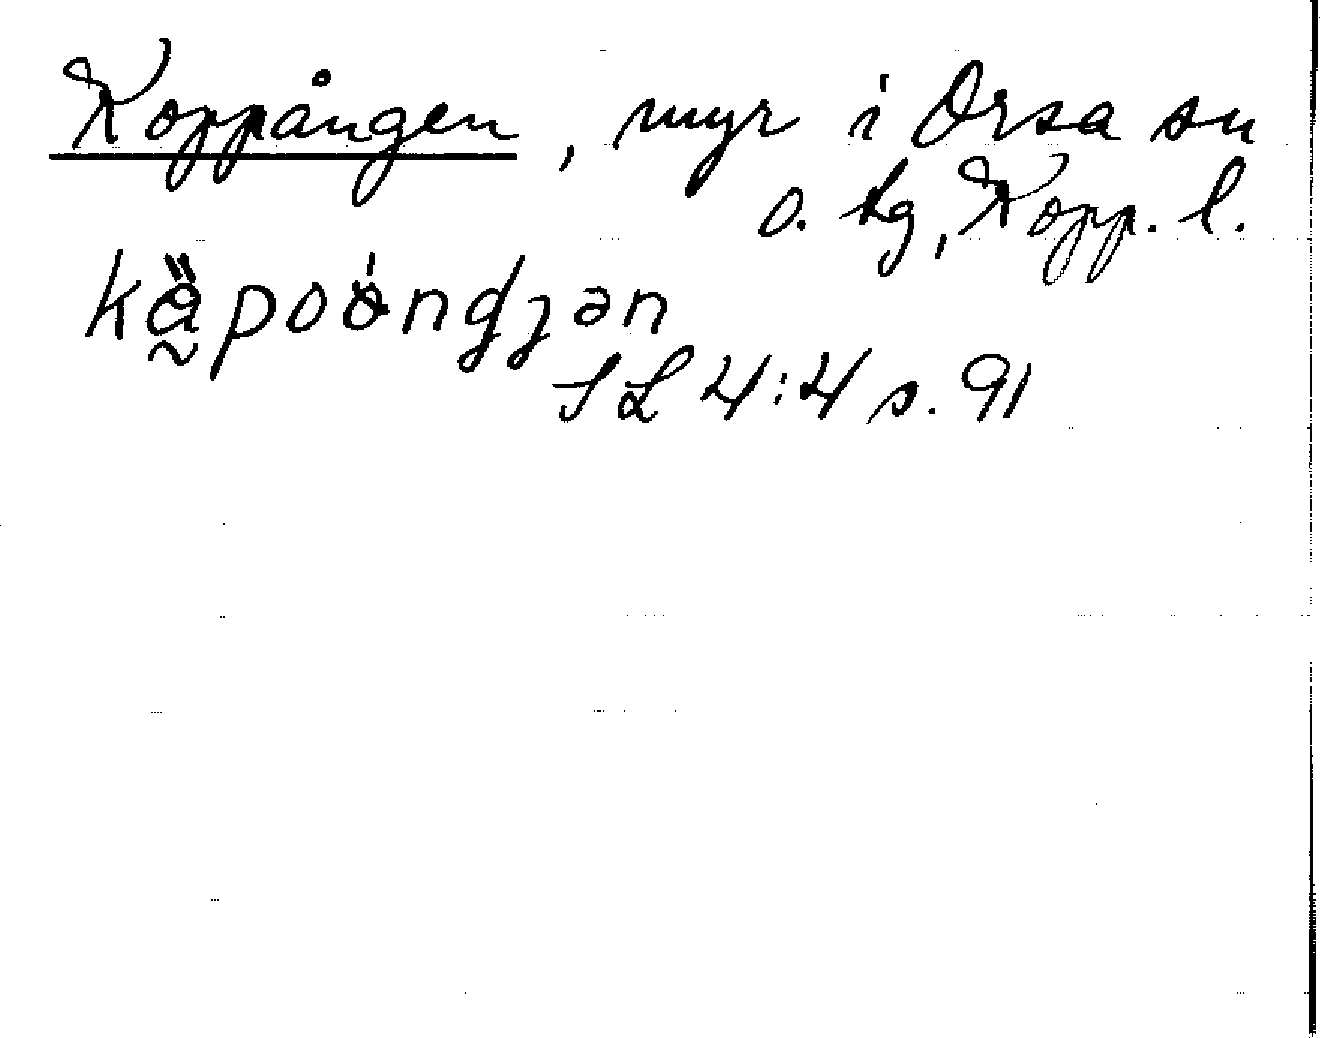 Koppången, myr i Orsa sn
o. hg, Kopp. l.
kä̰poóndȷən
SL 4:4 s. 91